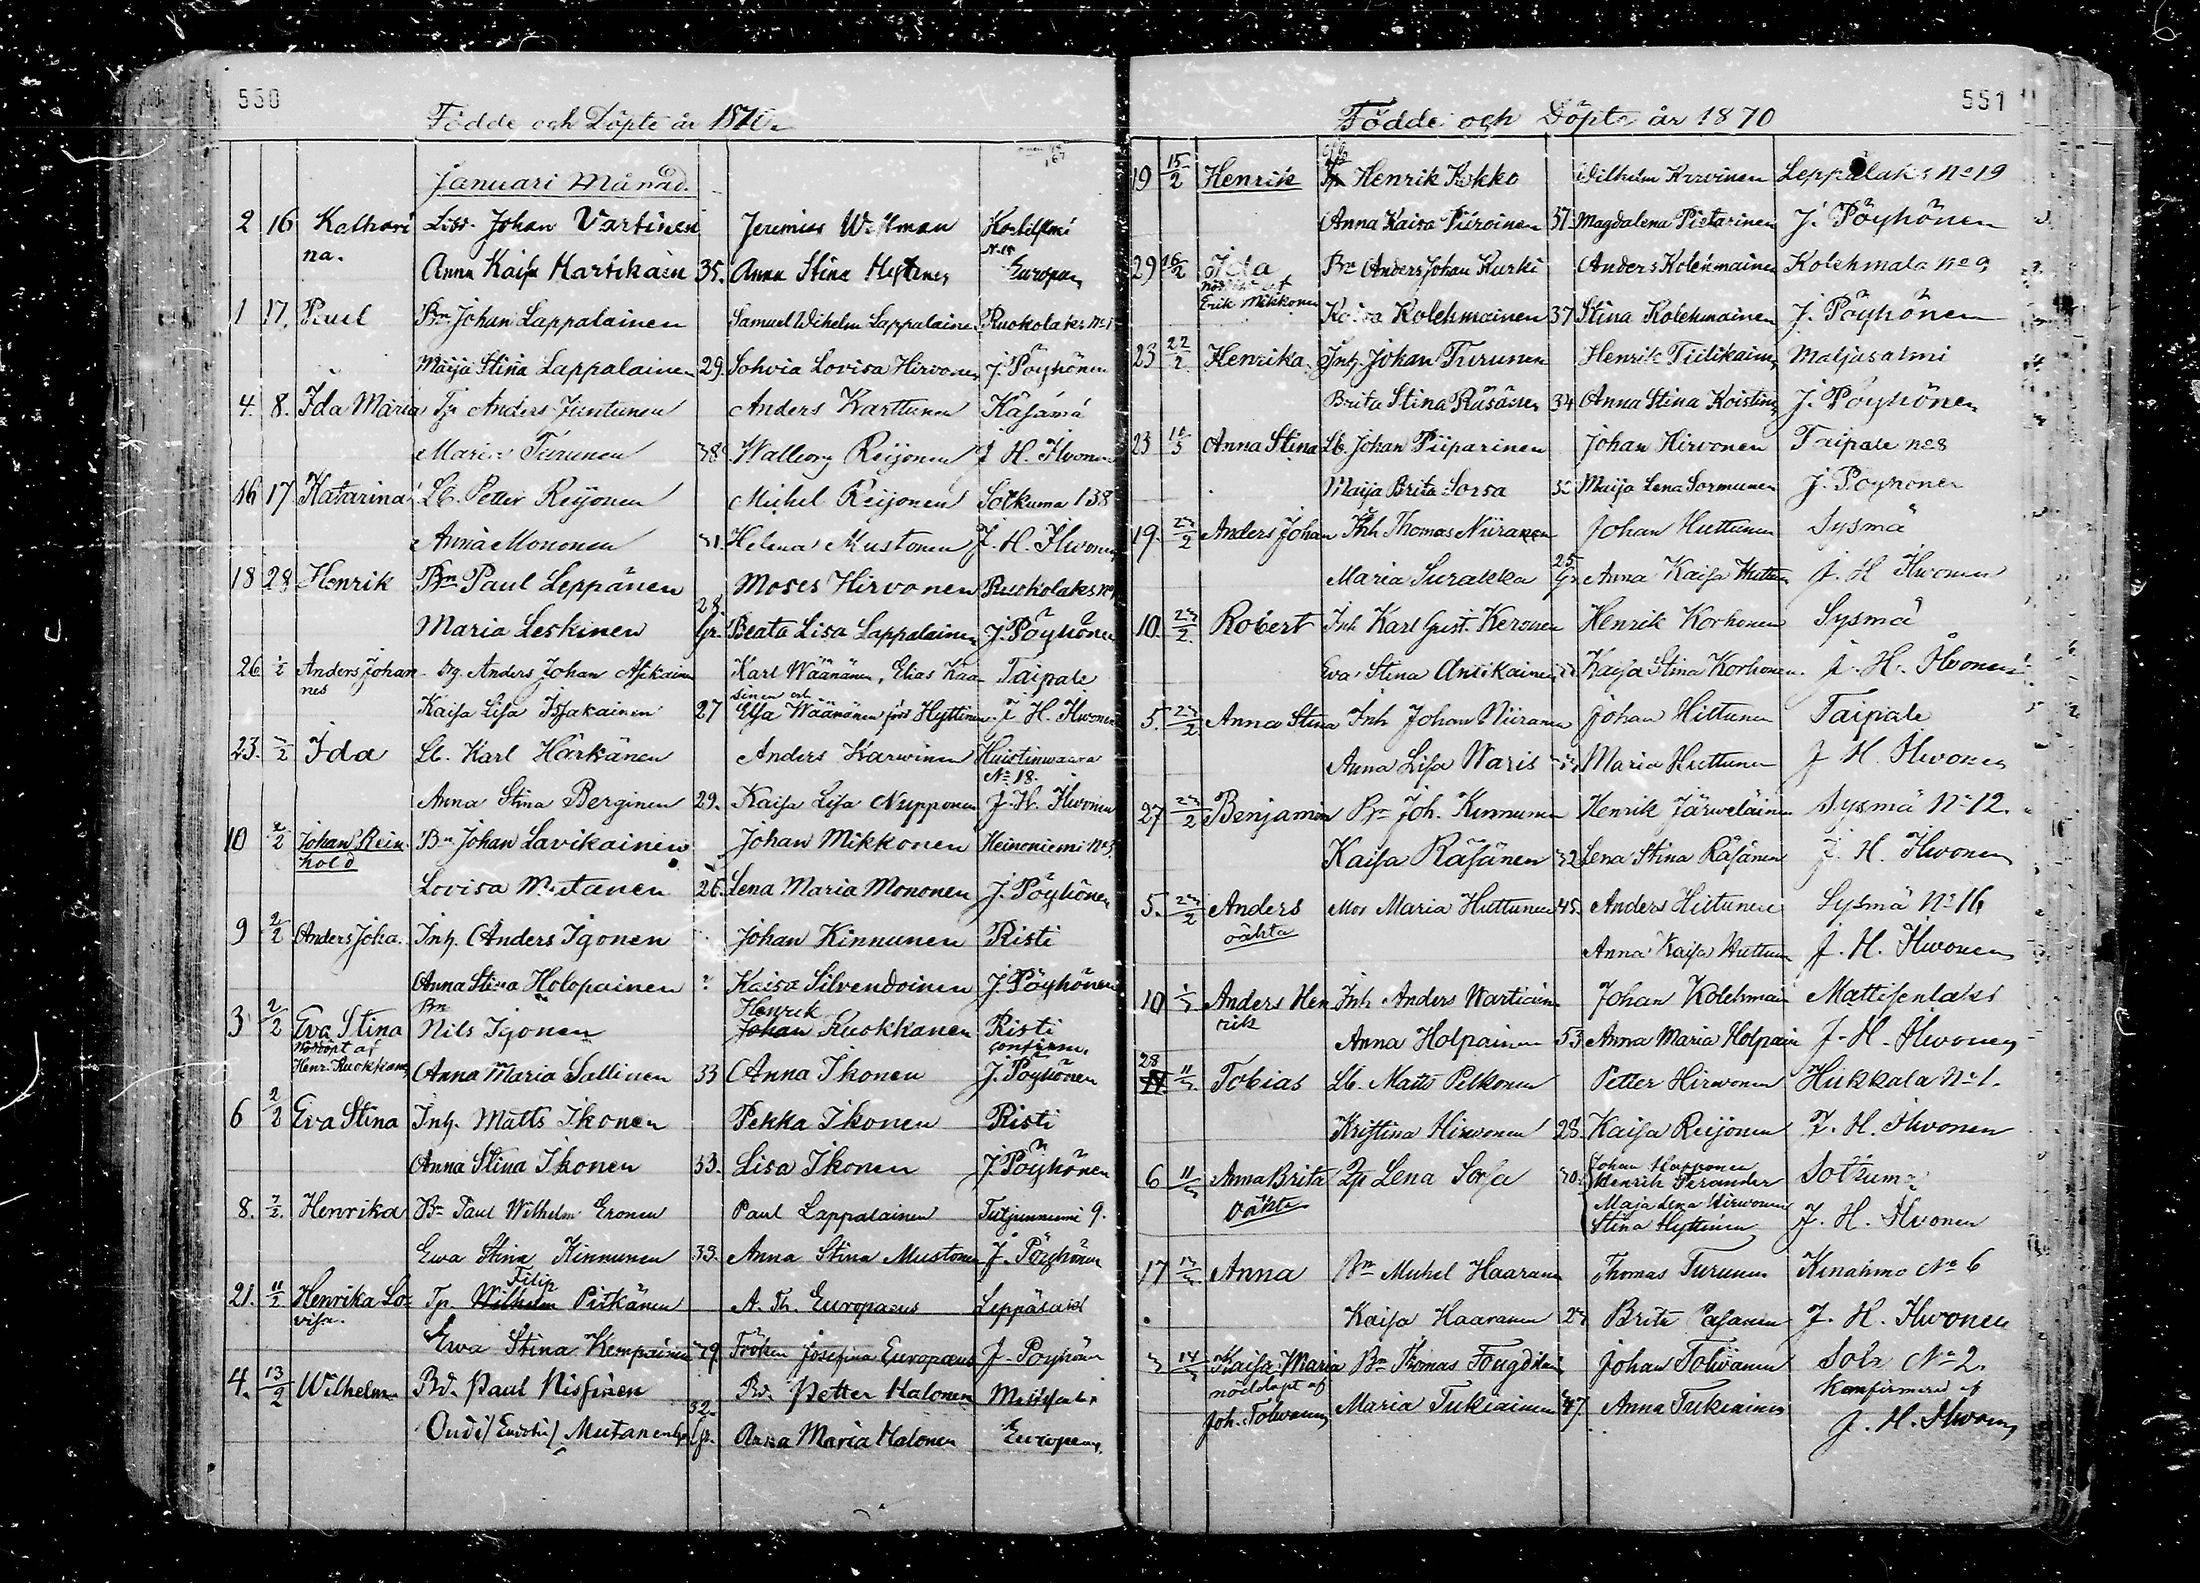 550
Födde och Döpte år 1870.
Januari Månad.
2 16 Kathari Johan Vartinen Jeremias
na. Anna Kaisa 35. Anna Stina Europæus
1 17. Paul Bn Johan Lappalainen Samuel Wihelm Lappalainen Ruokolaks No 1
Maija Stina Lappalainen 29. Sohvia Lovisa Hirvonen J. Pöyhönen
4. 8. Ida Maria Tp Anders Juntunen Anders Karttunen Käsämä
Maria Turunen 38 Walborg Reijonen J. H. Ilvonen
16 17 Katarina Lb. Petter Reijonen Michel Reijonen Sotkuma 138
Anna Mononen 31. Helena Mustonen J. H. Ilvonen
18 28 Henrik Bn Paul Leppänen Moses Hirvonen Ruokolaks No 1
28.
Maria Leskinen Gr. Beata Lisa Lappalainen J. Pöyhönen
26. 1/2 Anders Johan Anders Johan Karl Wäänänen, Elias Kaa- Taipale
nes sinen och
Kaisa Lisa 27 Elsa Wäänänen född Hyttinen J. H. Ilvonen
23. 2/2 Ida Lb. Karl Härkänen Anders Karwinen Huistinwaara
No 18.
Anna Stina Berginen 29. Kaisa Lisa Nupponen J. H. Ilvonen
10 2/2 Johan Rein Bn Johan Lavikainen Johan Mikkonen Heinoniemi No 3.
hold
Lovisa Mutanen 26. Lena Maria Mononen J. Pöyhönen
9 2/2 Anders Joha. Inh. Anders Igonen Johan Kinnunen Risti
Anna Stina Holopainen Kaisa Silvendoinen J. Pöyhönen
Bn Henrik
3 2/2 Eva Stina Nils Igonen Johan Ruokkanen Risti
Nöddöpt af confirm.
Henr. Ruokkanen Anna Maria Sallinen 33 Anna Ikonen J. Pöyhönen
6 2/2 Eva Stina Inh. Matts Ikonen Pekka Ikonen Risti
Anna Stina Ikonen 33. Lisa Ikonen J. Pöyhönen
8. 7/2. Henrika Bn Paul Wilhelm Eronen Paul Lappalainen Tutjunniemi 9.
Ewa Stina Kinnunen 33. Anna Stina Mustonen J. Pöyhönen
Filip
21. 11/2 Henrika Lo- Tp. Wilhelm Pitkänen A. Th. Europaeus Leppäsaari
visa.
Ewa Stina Kempainen 29. Fröken Josefina Europaeus J. Pöyhönen
4. 13/2 Wilhelm Bd. Paul Nissinen Bd. Petter Halonen
32.
Oudi Mutanen Gr. Anna Maria Halonen Europæus
551
Födde och Döpte år 1870
19 15/2 Henrik Henrik Kokko Wilhelm Kervinen Leppälaks No 19
Anna Kaisa Piiroinen 37 Magdalena Pietarinen J. Pöyhönen
29 16/2 Ida Bn Anders Johan Kurki Anders Kolehmainen Kolehmala No 9
Nöddöpt af
Erik Mikkonen Kaisa Kolehmainen 37 Stina Kolehmainen J. Pöyhönen
23 22/2 Henrika Inh. Johan Turunen Henrik Tiilikainen Maljasalmi
Brita Stina Räsänen 34 Anna Stina Koistinen J. Pöyhönen
23 Anna Stina Lb. Johan Piiparinen Johan Hirvonen Taipale No 8
Maija Brita Sorsa Maija Lena Sormunen J. Pöyhönen
19. Anders Johan Inh Thomas Niiranen Johan Huttunen Sysmä
25
Maria Surakka Gr. Anna Kaisa Huttunen J. H. Ilvonen
10. Robert Inh Karl Gust. Keronen Henrik Korhonen Sysmä
Eva Stina Antikainen Kaisa Stina Korhonen J. H. Ilvonen
5. Anna Stina Inh Johan Niiranen Johan Hiltunen Taipale
Anna Lisa Waris Maria Huttunen J. H. Ilvonen
27 Benjamin Bn Joh. Kinnunen Henrik Järweläinen Sysmä No 12.
Kaisa Räsänen 32 Lena Stina Räsänen J. H. Ilvonen
5. Anders Mor Maria Huttunen 45. Anders Hiltunen Sysmä No 16
oäkta
Anna Kaisa Huttunen J. H. Ilvonen
10 Anders Hen Inh Anders Wartiainen Johan Kolehmai Mattisenlaks
rik
Anna Holpainen 53 Anna Maria Holpain J. H. Ilvonen
28
Tobias Lb. Matts Pelkonen Petter Hirvonen Hukkala No 1.
Kristina Hirvonen 28. Kaisa Reijonen J. H. Ilvonen
6 Anna Brita Lena Sorsa 30. Johan Happonen Sotkuma
Henrik Terander
oäkta Maja Lena Hirwonen
Stina Hyttinen J. H. Ilvonen
17 Anna Bn Michel Haaranen Thomas Turunen Kinahmo No 6
Kaisa Haaranen Brita Pasanen J. H. Ilvonen
3 Kaisa Maria Bn Thomas Johan Tolwanen Sola No 2.
nöddöpt af Konfirmerad af
Joh. Tolwanen Maria Tukiainen 47. Anna Tukiainen J. H. Ilvonen